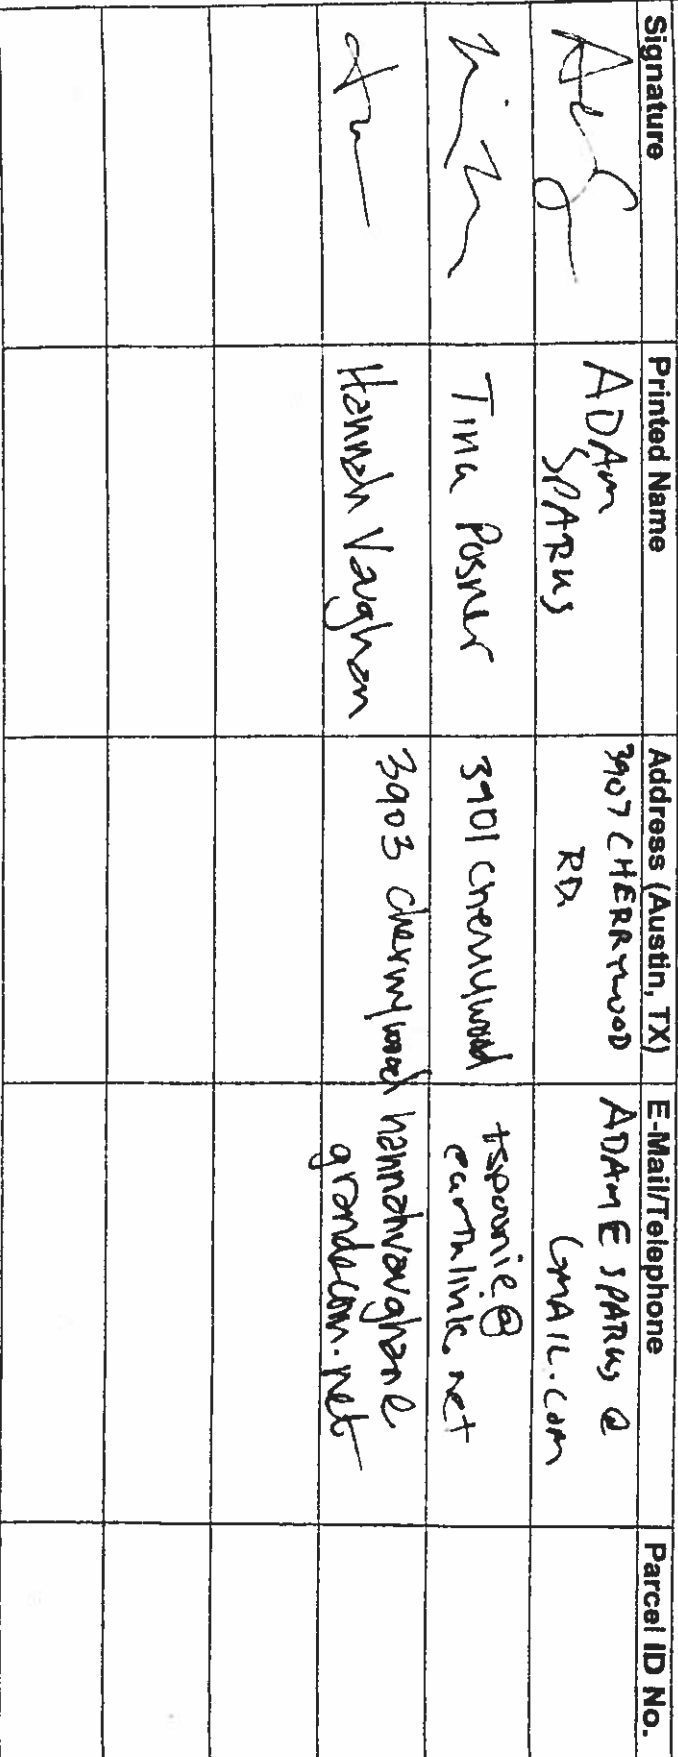 Signature Printed Name Address (Austin, TX) E-Mail/Telephone Parcel ID No.
ADAM SPARKS 3907 CHERRYWOOD RD. ADAMESPARKS@GMAIL.COM
Tina Posner 3901 Cherrywood tsposnie@earthlink.net
Hannah Vaughan 3903 cherrywood hannahvaughan@grandecom.net